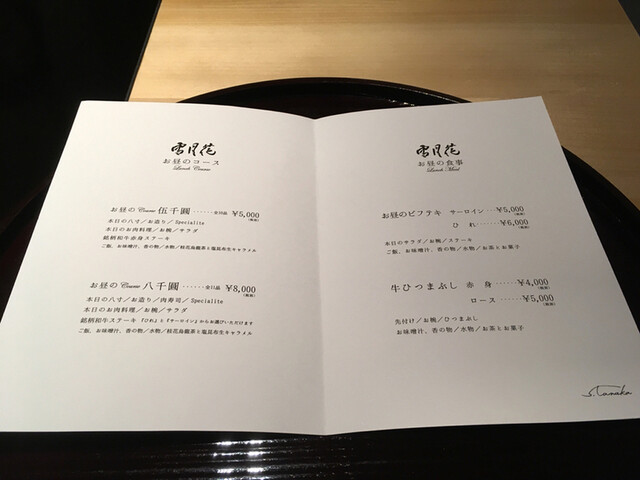 雪月花
お昼のコース
Lunch Course
お昼のCourse 伍千圓 ······全10品 ¥5,000
(税抜)
本日の八寸／お造り／Specialite
本日のお肉料理／お椀／サラダ
銘柄和牛赤身ステーキ
ご飯、お味噌汁、香の物／水物／桂花烏龍茶と塩昆布生キャラメル
お昼のCourse 八千圓 ······全11品 ¥8,000
(税抜)
本日の八寸／お造り／肉寿司／Specialite
本日のお肉料理／お椀／サラダ
銘柄和牛ステーキ『ひれ』と『サーロイン』からお選びいただけます
ご飯、お味噌汁、香の物／水物／桂花烏龍茶と塩昆布生キャラメル
雪月花
お昼の食事
Lunch Meal
お昼のビフテキ サーロイン···¥5,000
(税抜)
ひれ ···¥6,000
(税抜)
本日のサラダ／お椀／ステーキ
ご飯、お味噌汁、香の物／水物／お茶とお菓子
牛ひつまぶし 赤身 ······¥4,000
(税抜)
ロース ······¥5,000
(税抜)
先付け／お椀／ひつまぶし
お味噌汁、香の物／水物／お茶とお菓子
S.Tanaka